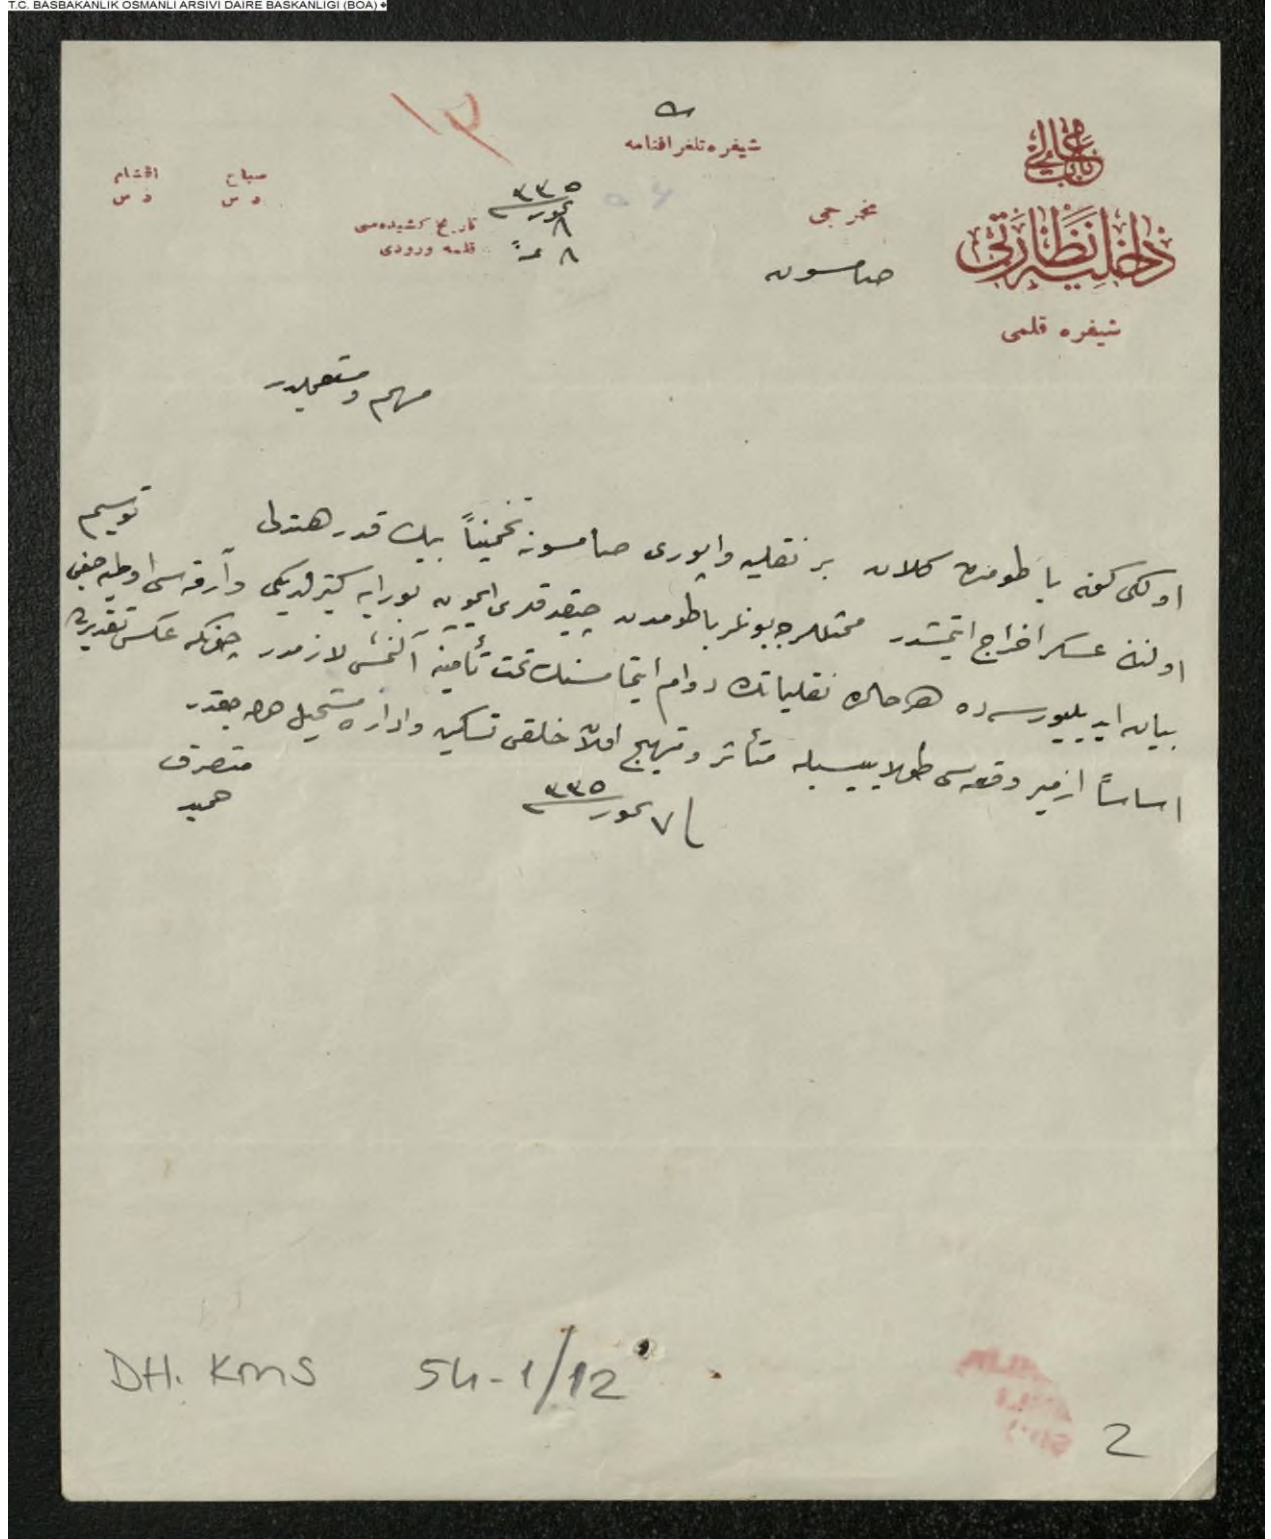 T.C. BASBAKANLIK OSMANLI ARSIVI DAIRE BASKANLIGI (BOA)
باب عالی
داخلیه نظارتی
شیفره قلمی
شیفره تلغرافنامه
مخرجی
صامسون
صباح
د س
اقشام
د س
تاریخ کشیده‌سی
٨ تموز ٣٣٥
قلمه ورودی
٨
مهم و مستعجلدر
اولکی كون باطومدن كلان بر نقلیه واپوری صامسونه تخمیناً بیك قدر هندلی توسیم
اولنان عسكر اخراج ایتمشدر بونلر باطومدن چیقدقلری ایچون بورایه كتیرلدیكی و آرقه‌سی
بیان ایدیلیورسه ده هر حالده نقلیاتك دوام ایتمامسنك تحت تأمینه آلنمسی لازمدر چونكه عكس تقدیرده
اساساً ازمیر وقعه‌سی طولاییسیله متأثر و متهیج اولان خلقی تسكین و اداره مستحیل اوله‌جقدر
٧ تموز ٣٣٥
متصرف
حمید
DH. KMS 54-1/12
2